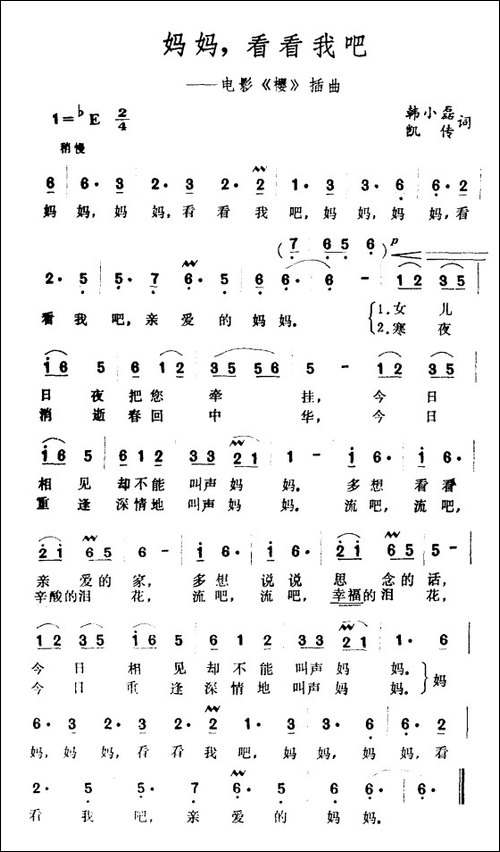 妈妈，看看我吧
——电影《樱》插曲
1=♭E 2/4
韩小磊
凯传 词
稍慢
6 6· 3 2· 3 2· 2 1· 3 3· 6 6· 2
妈 妈，妈 妈，看 看 我 吧，妈 妈，妈 妈，看
(7 6 5 6·) p
2· 5 5· 7 6· 6 6 - 12 35
看 我 吧，亲 爱 的 妈 妈。 1.女 儿
2.寒 夜
i6 5 5 612 35 56 5 - 12 35
日 夜 把 您 牵 挂，今 日
消 逝 春 回 中 华，今 日
i6 5 612 33 21 1 - i6· i6·
相 见 却不能 叫声 妈 妈。 多想 看看
重 逢 深情地 叫声 妈 妈。 流吧，流吧，
2i 65 6 - i6· i6· 2i 65 6 -
亲 爱的 家，多 想 说说 思 念的 话，
辛酸的泪 花，流吧，流吧，幸福的泪 花，
12 35 i6 5 612 33 21 1·
今 日 相 见 却 不 能 叫声 妈 妈。
今 日 重 逢 深 情 地 叫声 妈 妈。 妈
6· 3 2· 3 2· 2 1· 3 3· 6 6· 2
妈，妈 妈，看 看 我 吧，妈 妈，妈 妈，看
2· 5 5· 7 6· 6 6 - 6 -
看 我 吧，亲 爱 的 妈 妈。